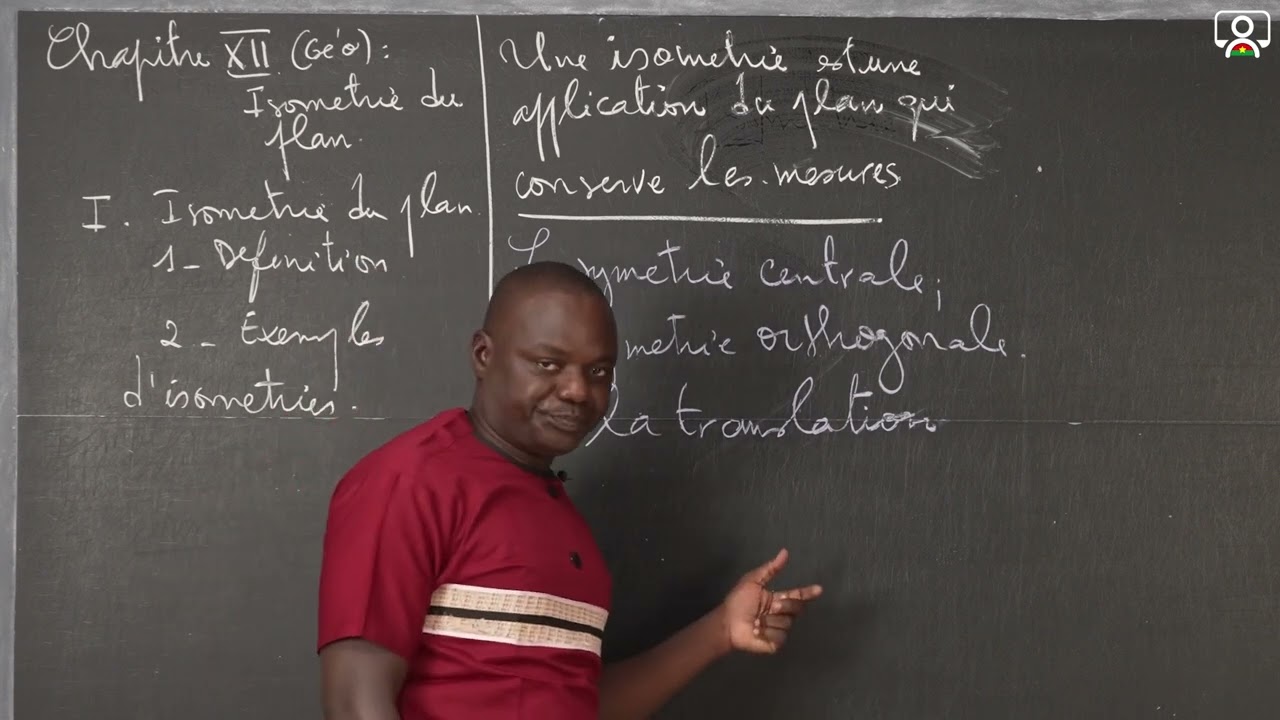 Chapitre XII (Géo):
Isometrie du
plan.
I. Isometrie du plan.
1_ Definition
2_ Exemples
d'isometries.
Une isometrie est une
application du plan qui
conserve les mesures
symetrie centrale;
metrie orthogonale.
La translation